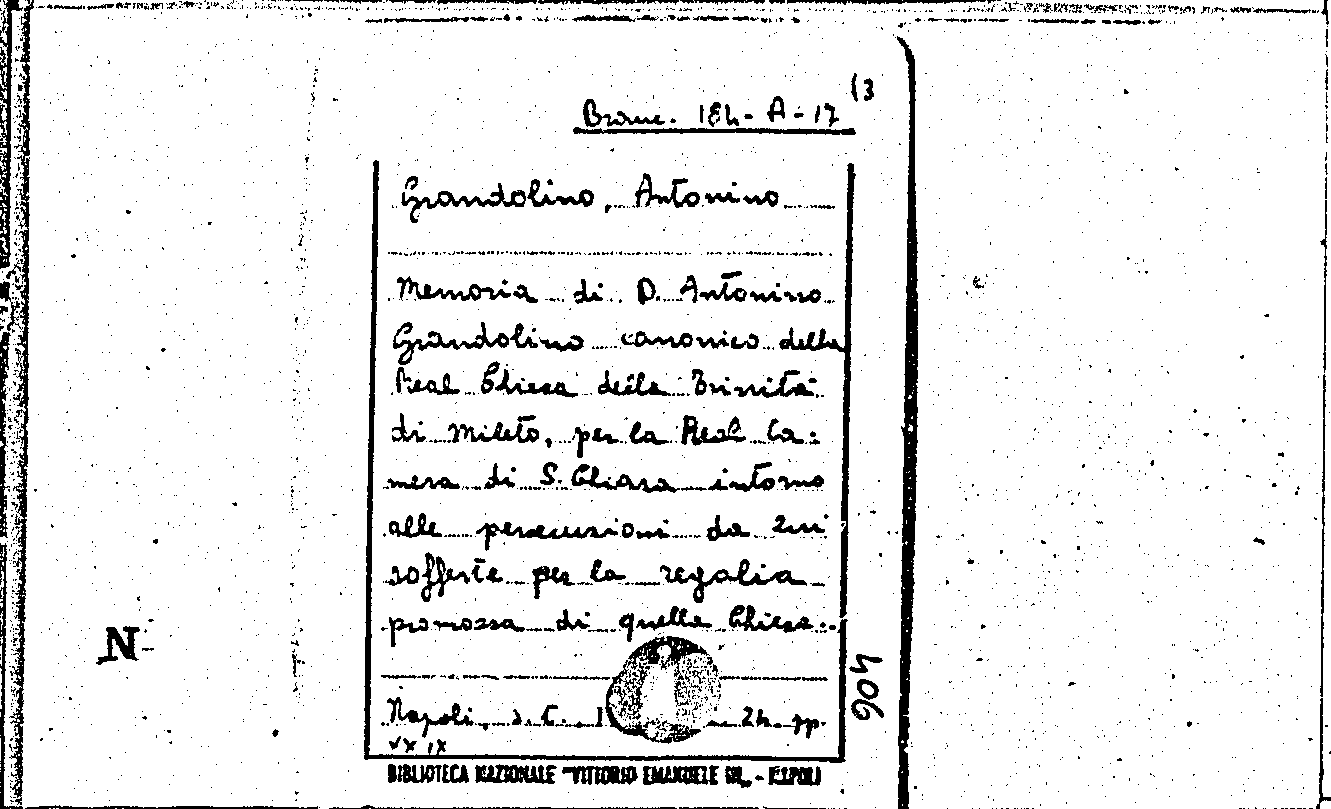 (3
Branc. 184-A-17
Grandolino, Antonino
Memoria di D. Antonino
Grandolino canonico della
Real Chiesa della Trinità
di Mileto, per la Real Ca:
mera di S. Chiara intorno
alle persecuzioni da lui
sofferte per la regalia
promossa di quella Chiesa..
N
406
Napoli, s. t. 24. pp.
BIBLIOTECA NAZIONALE "VITTORIO EMANUELE III„ - NAPOLI